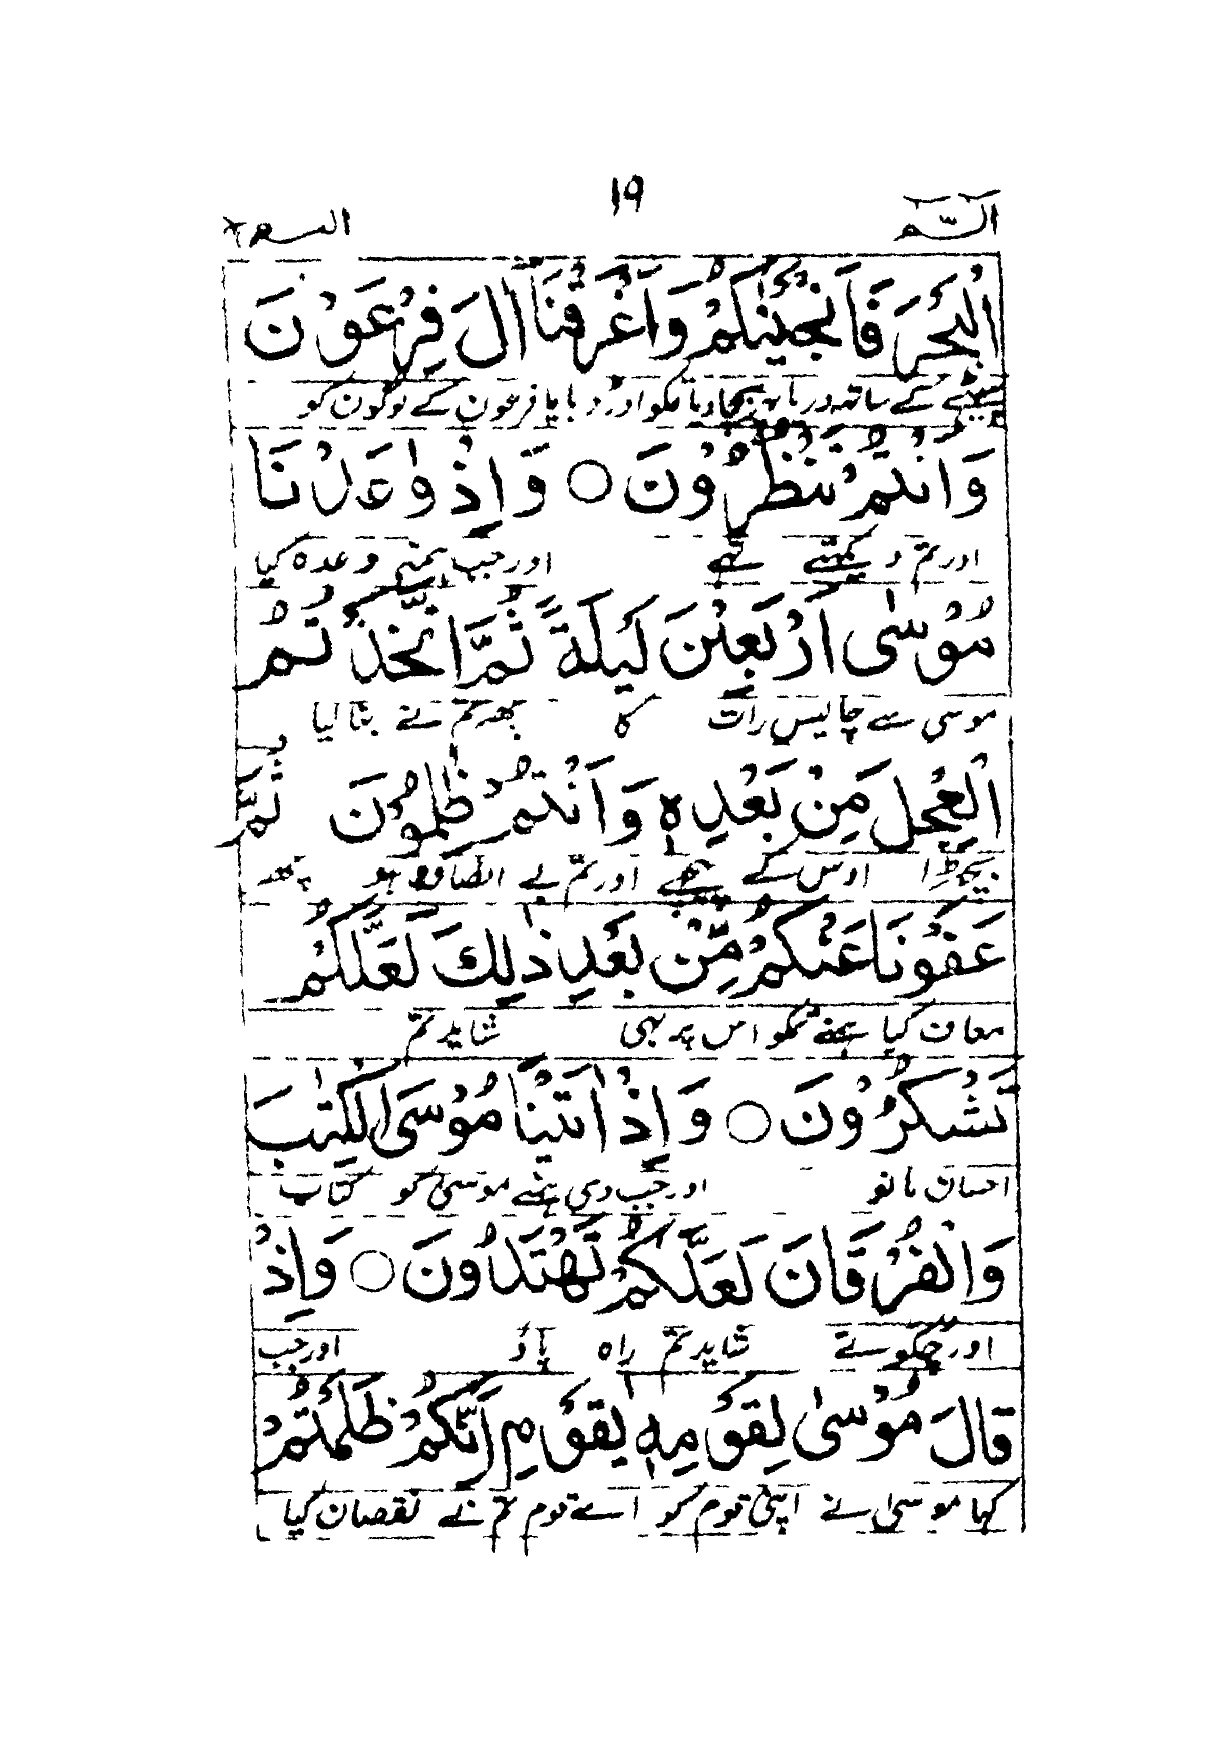 ۱۹
الٓمّٓ
البقرة
الْبَحْرَ فَاَنْجَيْنٰكُمْ وَاَغْرَقْنَآ اٰلَ فِرْعَوْنَ
پیٹھنے کے ساتھ دریا پہر بچا دیا تمکو اور ڈبا یا فرعون کے لوگون کو
وَاَنْتُمْ تَنْظُرُوْنَ ○ وَاِذْ وٰعَدْنَا
اور تم دیکھتے تھے اور جب ہمنے وعدہ کیا
مُوْسٰٓى اَرْبَعِيْنَ لَيْلَةً ثُمَّ اتَّخَذْتُمُ
موسی سے چالیس رات کا پھر تم نے بنا لیا
الْعِجْلَ مِنْ بَعْدِهٖ وَاَنْتُمْ ظٰلِمُوْنَ ثُمَّ
بچھڑا اوس کے پیچھے اور تم بے انصاف ہو پھر
عَفَوْنَا عَنْكُمْ مِّنْ بَعْدِ ذٰلِكَ لَعَلَّكُمْ
معاف کیا ہمنے تمکو اس پر بھی شاید تم
تَشْكُرُوْنَ ○ وَاِذْ اٰتَيْنَا مُوْسَى الْكِتٰبَ
احسان مانو اور جب دی ہمنے موسیٰ کو کتاب
وَالْفُرْقَانَ لَعَلَّكُمْ تَهْتَدُوْنَ ○ وَاِذْ
اور چکوتے شاید تم راہ پاؤ اور جب
قَالَ مُوْسٰى لِقَوْمِهٖ يٰقَوْمِ اِنَّكُمْ ظَلَمْتُمْ
کہا موسیٰ نے اپنی قوم کو اے قوم تم نے نقصان کیا